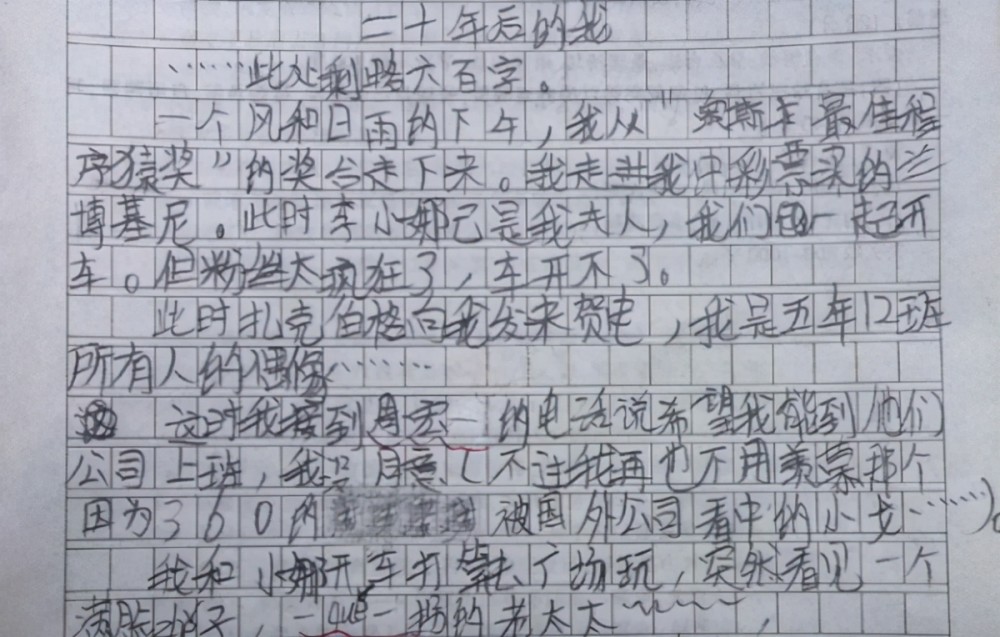 二十年后的我
……此处剩略六百字。
一个风和日雨的下午，我从“奥斯车最佳程
序猿奖”的奖台走下来。我走进我中彩票买的兰
博基尼。此时李小娜已是我夫人，我们一起开
车。但粉丝太疯狂了，车开不了。
此时扎克伯格向我发来贺电，我是五年12班
所有人的偶像……
这时我接到周宏一的电话说希望我能到他们
公司上班，我 不过我再也不用羡慕那个
因为360的 被国外公司看中的小戈……
我和小娜开车打算去广场玩，突然看见一个
满脸 子，一que一拐的老太太～～～，